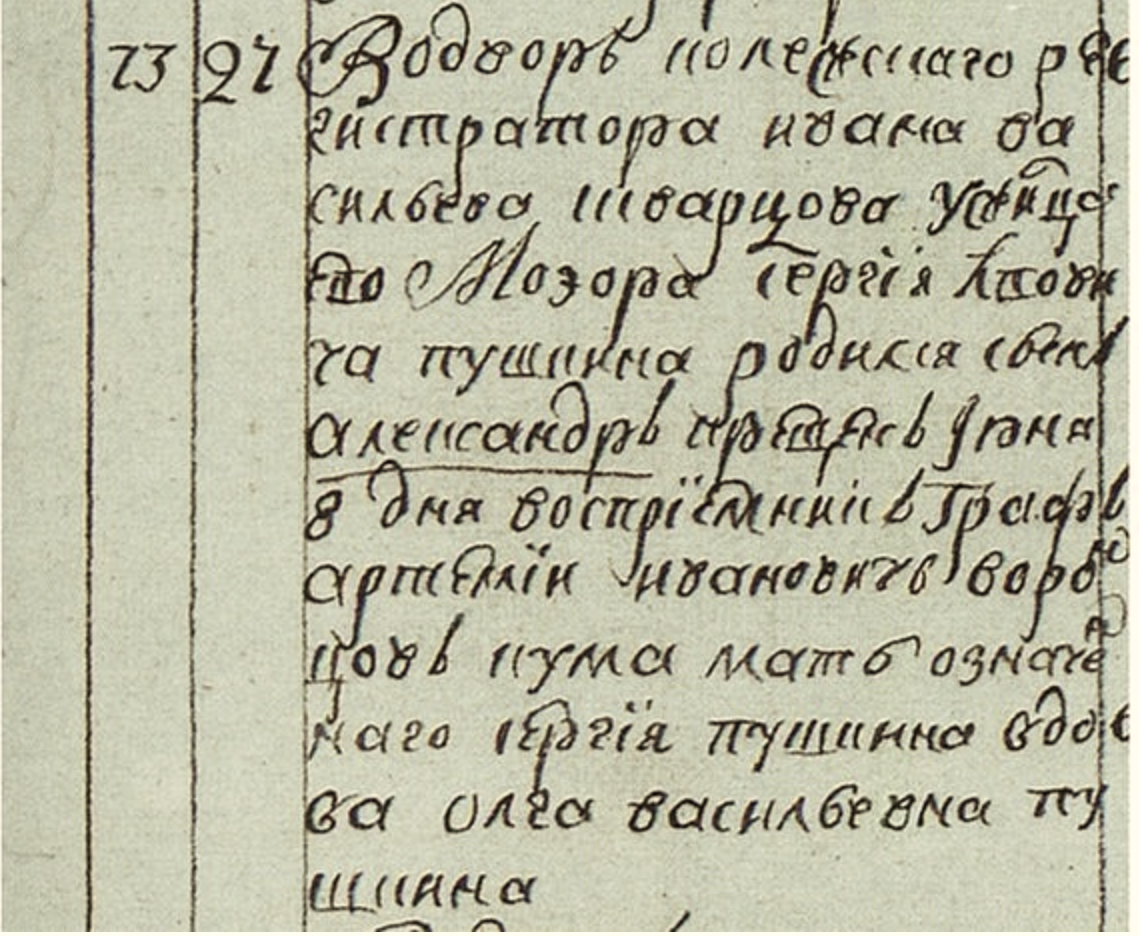 73 27 Водворѣ колежскаго ре
гистратора ивана ва
сильева шварцова у жильца
его Моэора Сергія Лвови
ча пушкина родился сынъ
александръ крещенъ июня
8 дня воспріемникъ Графъ
артемїи ивановичь ворон
цовъ кума мать означен
наго сергїя пушкина вдо
ва олга васильевна пу
шкина